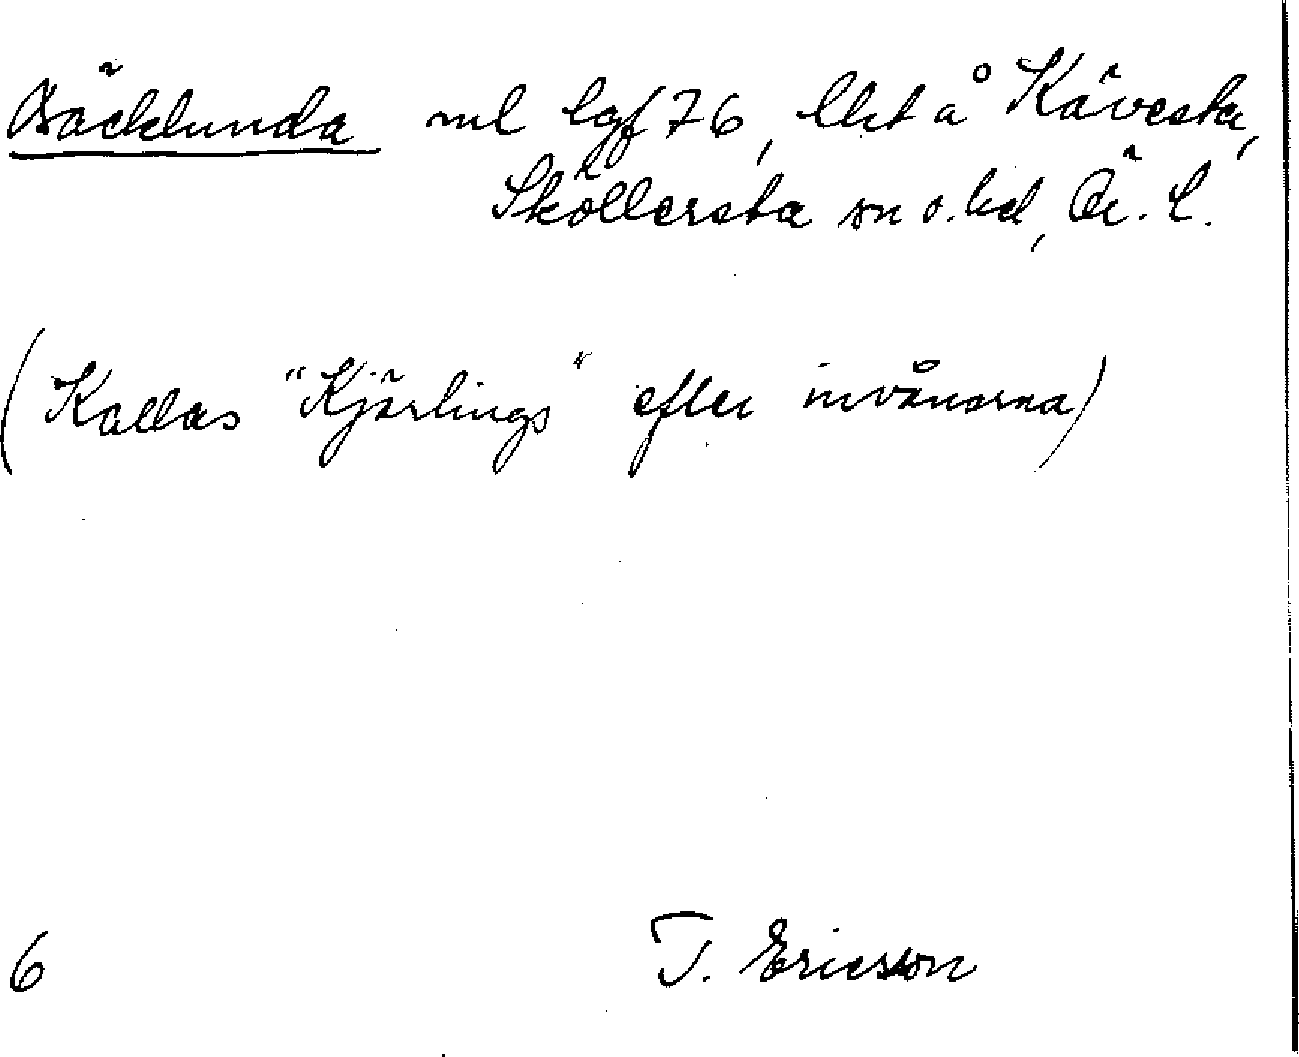 Bäcklunda ml lgf 76, lht å Kävesta,
Sköllersta sn o. hd, Ör. l.
(Kallas "Kjärlings" efter invånarna)
6 T. Ericson